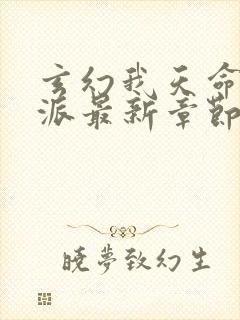 玄幻我天命
派最新章節
曉夢致幻生